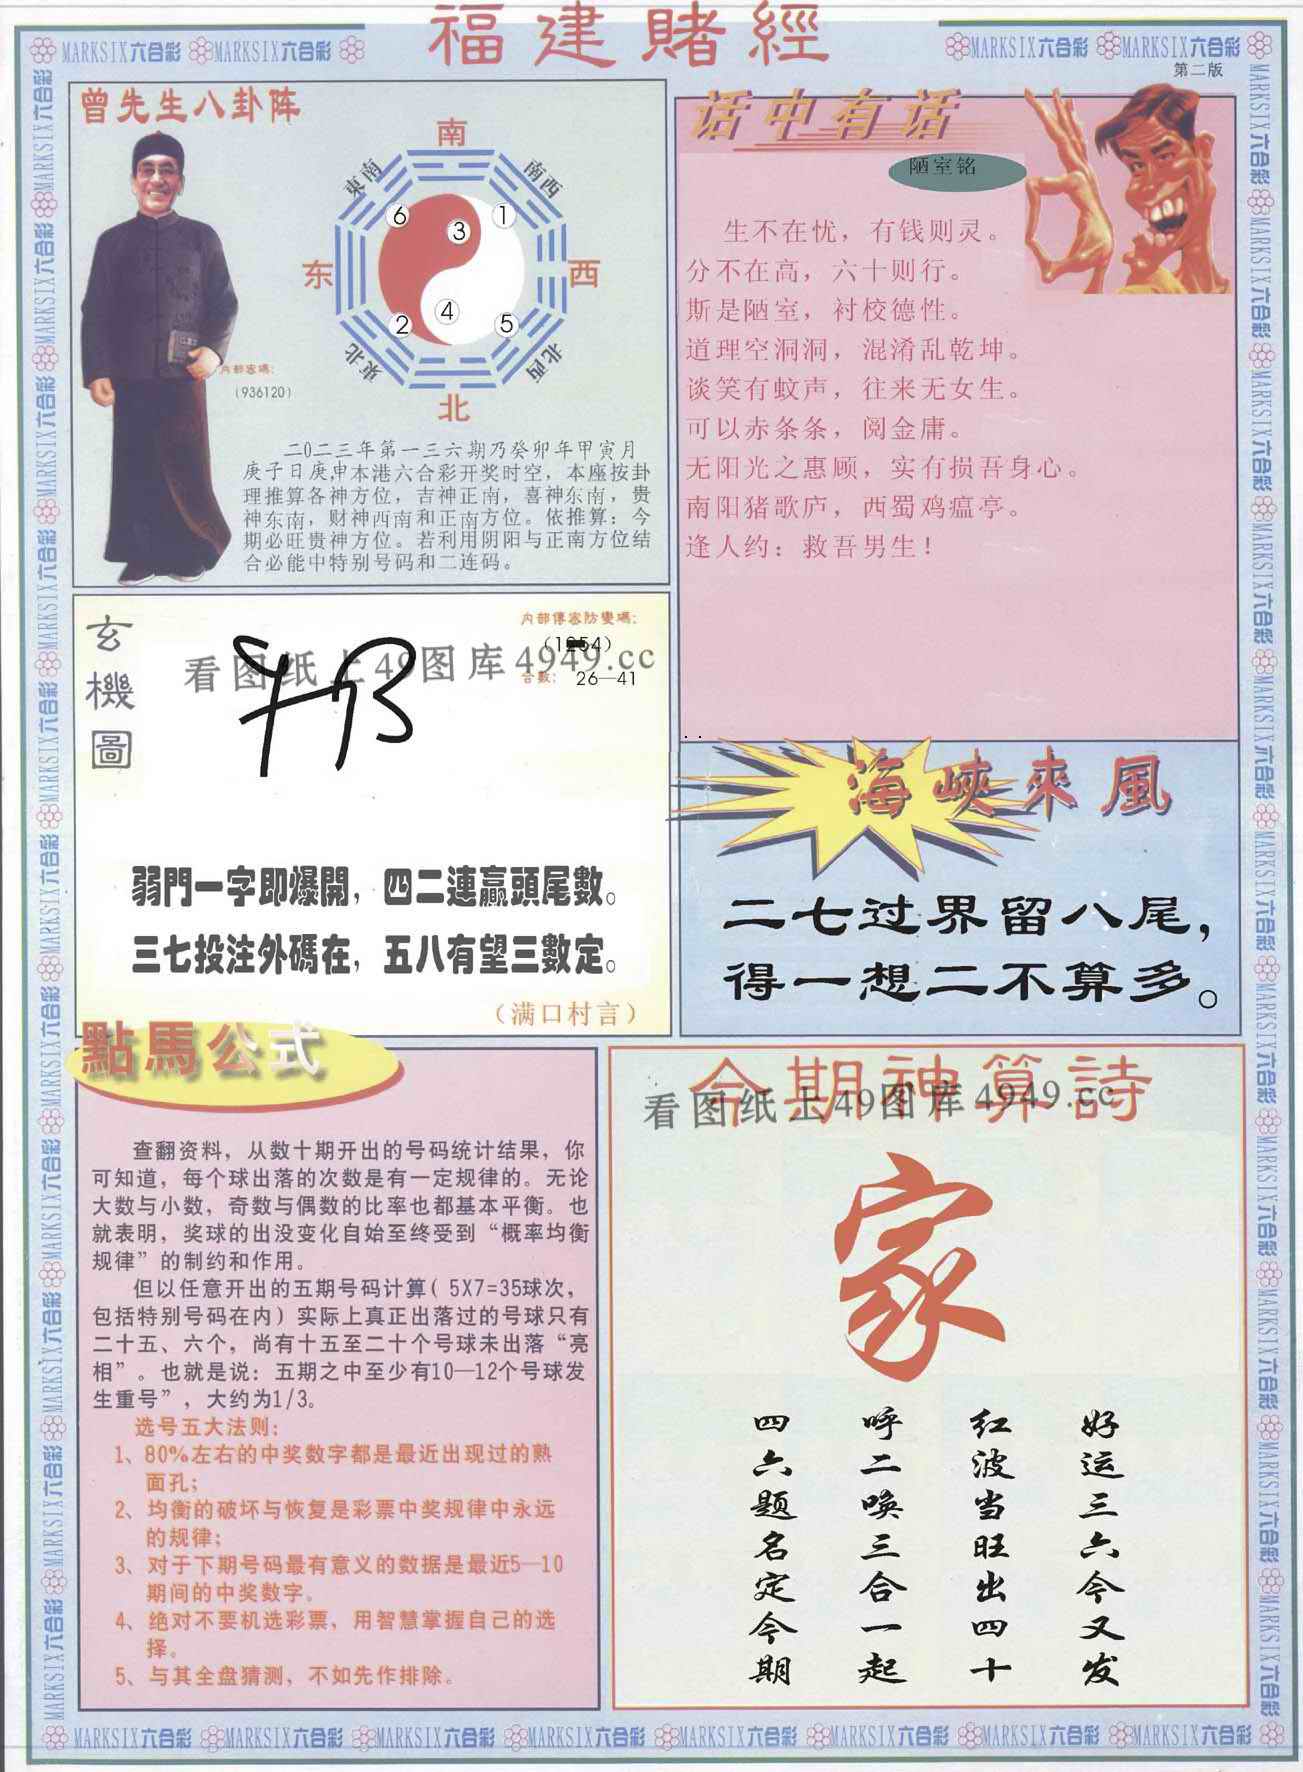 福建賭經
MARKSIX六合彩 MARKSIX六合彩
MARKSIX六合彩 MARKSIX六合彩
第二版
曾先生八卦阵
南
東南
南西
6
3
1
东
西
4
2
5
東北
北西
北
内部密碼:
(936120)
二0二三年第一三六期乃癸卯年甲寅月
庚子日庚申本港六合彩开奖时空，本座按卦
理推算各神方位，吉神正南，喜神东南，贵
神东南，财神西南和正南方位。依推算：今
期必旺贵神方位。若利用阴阳与正南方位结
合必能中特别号码和二连码。
话中有话
陋室铭
生不在忧，有钱则灵。
分不在高，六十则行。
斯是陋室，衬校德性。
道理空洞洞，混淆乱乾坤。
谈笑有蚊声，往来无女生。
可以赤条条，阅金庸。
无阳光之惠顾，实有损吾身心。
南阳猪歌庐，西蜀鸡瘟亭。
逢人约：救吾男生！
玄機圖
内部傳密防變碼:
合數: 26—41
看图纸上49图库4949.cc
弱門一字即爆開，四二連贏頭尾數。
三七投注外碼在，五八有望三數定。
（满口村言）
海峽來風
二七过界留八尾，
得一想二不算多。
點馬公式
查翻资料，从数十期开出的号码统计结果，你
可知道，每个球出落的次数是有一定规律的。无论
大数与小数，奇数与偶数的比率也都基本平衡。也
就表明，奖球的出没变化自始至终受到“概率均衡
规律”的制约和作用。
但以任意开出的五期号码计算( 5X7=35球次，
包括特别号码在内）实际上真正出落过的号球只有
二十五、六个，尚有十五至二十个号球未出落“亮
相”。也就是说：五期之中至少有10—12个号球发
生重号”，大约为1/3。
选号五大法则:
1、80%左右的中奖数字都是最近出现过的熟
面孔;
2、均衡的破坏与恢复是彩票中奖规律中永远
的规律;
3、对于下期号码最有意义的数据是最近5—10
期间的中奖数字。
4、绝对不要机选彩票，用智慧掌握自己的选
择。
5、与其全盘猜测，不如先作排除。
今期神算詩
看图纸上49图库4949.cc
家
好运三六今又发
红波当旺出四十
呼二唤三合一起
四六题名定今期
MARKSIX六合彩 MARKSIX六合彩 MARKSIX六合彩 MARKSIX六合彩 MARKSIX六合彩 MARKSIX六合彩 MARKSIX六合彩 MARKSIX六合彩